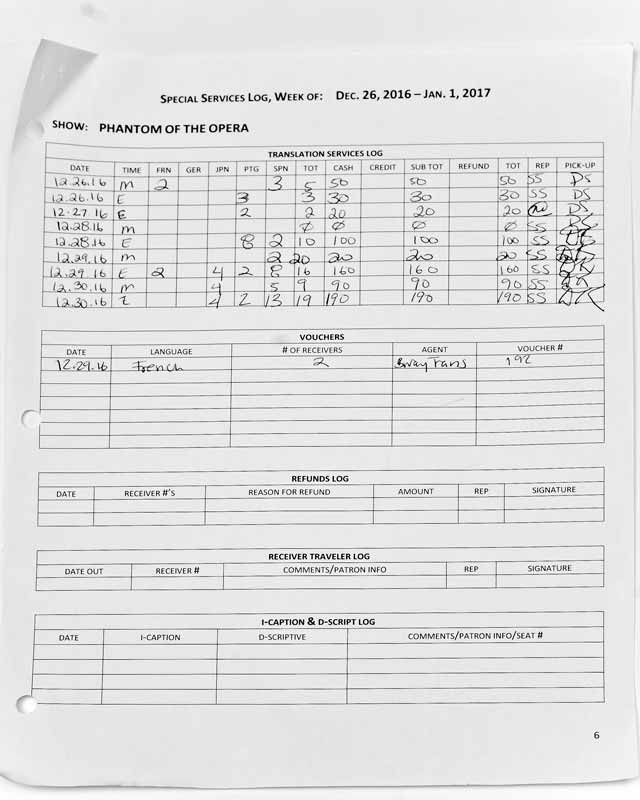 SPECIAL SERVICES LOG, WEEK OF: DEC. 26, 2016 – JAN. 1, 2017
SHOW: PHANTOM OF THE OPERA
TRANSLATION SERVICES LOG
DATE TIME FRN GER JPN PTG SPN TOT CASH CREDIT SUB TOT REFUND TOT REP PICK-UP
12.26.16 M 2 3 5 50 50 50 SS DS
12.26.16 E 3 3 30 30 30 SS DS
12.27.16 E 2 2 20 20 20 DS
12.28.16 M Ø Ø Ø Ø SS DS
12.28.16 E 8 2 10 100 100 100 SS
12.29.16 M 2 20 20 20 20 SS
12.29.16 E 2 4 2 8 16 160 160 160 SS DK
12.30.16 M 4 5 9 90 90 90 SS
12.30.16 E 4 2 13 19 190 190 190 SS DK
VOUCHERS
DATE LANGUAGE # OF RECEIVERS AGENT VOUCHER #
12.29.16 French 2 Bway Fans 192
REFUNDS LOG
DATE RECEIVER #'S REASON FOR REFUND AMOUNT REP SIGNATURE
RECEIVER TRAVELER LOG
DATE OUT RECEIVER # COMMENTS/PATRON INFO REP SIGNATURE
I-CAPTION & D-SCRIPT LOG
DATE I-CAPTION D-SCRIPTIVE COMMENTS/PATRON INFO/SEAT #
6